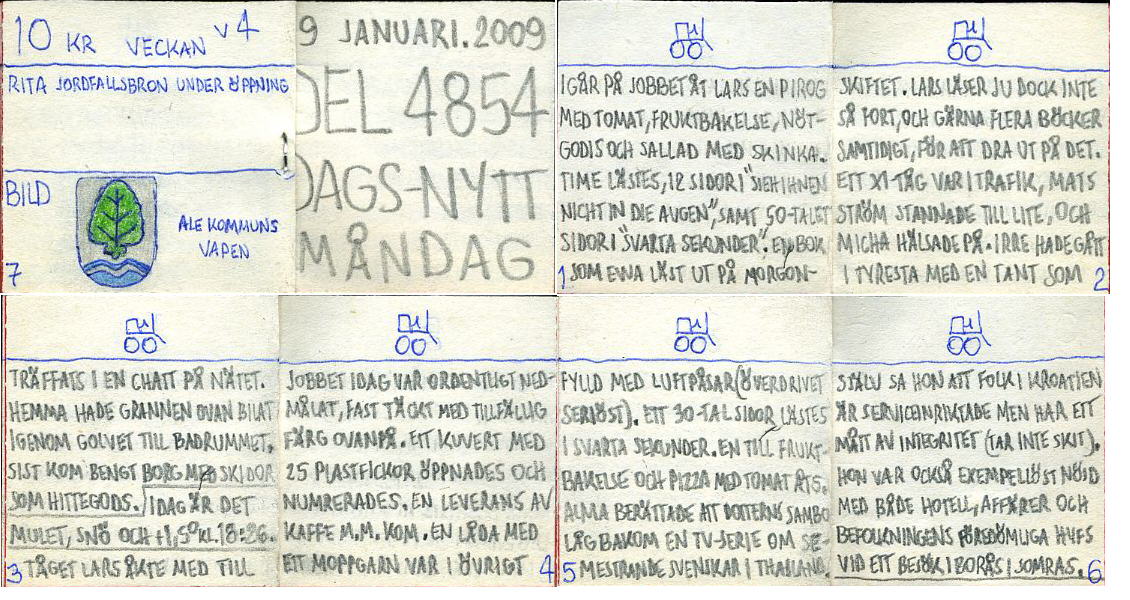 10 KR VECKAN V4
RITA JORDFALLSBRON UNDER ÖPPNING
BILD
ALE KOMMUNS
VAPEN
7
9 JANUARI. 2009
DEL 4854
DAGS-NYTT
MÅNDAG
IGÅR PÅ JOBBET ÅT LARS EN PIROG
MED TOMAT, FRUKTBAKELSE, NÖT-
GODIS OCH SALLAD MED SKINKA.
TIME LÄSTES, 12 SIDOR I "SIEH IHNEN
NICHT IN DIE AUGEN", SAMT 50-TALET
SIDOR I "SVARTA SEKUNDER". EN BOK
SOM EWA LÄST UT PÅ MORGON-
1
SKIFTET. LARS LÄSER JU DOCK INTE
SÅ FORT, OCH GÄRNA FLERA BÖCKER
SAMTIDIGT, FÖR ATT DRA UT PÅ DET.
ETT X1-TÅG VAR I TRAFIK, MATS
STRÖM STANNADE TILL LITE, OCH
MICHA HÄLSADE PÅ. IRRE HADE GÅTT
I TYRESTA MED EN TANT SOM
2
TRÄFFATS I EN CHATT PÅ NÄTET.
HEMMA HADE GRANNEN OVAN BILAT
IGENOM GOLVET TILL BADRUMMET.
SIST KOM BENGT BORG MED SKIDOR
SOM HITTEGODS. IDAG ÄR DET
MULET, SNÖ OCH +1,5° KL. 18:26.
TÅGET LARS ÅKTE MED TILL
3
JOBBET IDAG VAR ORDENTLIGT NED-
MÅLAT, FAST TÄCKT MED TILLFÄLLIG
FÄRG OVANPÅ. ETT KUVERT MED
25 PLASTFICKOR ÖPPNADES OCH
NUMRERADES. EN LEVERANS AV
KAFFE M.M. KOM. EN LÅDA MED
ETT MOPPGARN VAR I ÖVRIGT
4
FYLLD MED LUFTPÅSAR (ÖVERDRIVET
SERIÖST). ETT 30-TAL SIDOR LÄSTES
I SVARTA SEKUNDER. EN TILL FRUKT-
BAKELSE OCH PIZZA MED TOMAT ÅTS.
ALMA BERÄTTADE ATT DOTTERNS SAMBO
LÅG BAKOM EN TV-SERIE OM SE-
MESTRANDE SVENSKAR I THAILAND.
5
SJÄLV SA HON ATT FOLK I KROATIEN
ÄR SERVICEINRIKTADE MEN HAR ETT
MÅTT AV INTEGRITET (TAR INTE SKIT).
HON VAR OCKSÅ EXEMPELLÖST NÖJD
MED BÅDE HOTELL, AFFÄRER OCH
BEFOLKNINGENS FÖRSÖMLIGA HYFS
VID ETT BESÖK I BORÅS I SOMRAS.
6